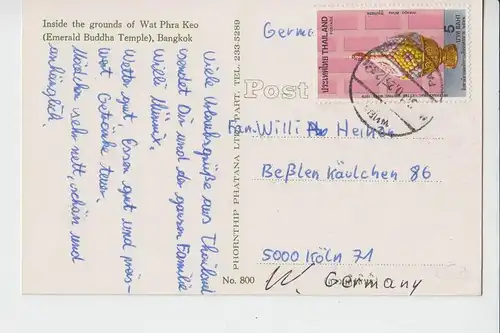 Inside the grounds of Wat Phra Keo
(Emerald Buddha Temple), Bangkok
Viele Urlaubsgrüße aus Thailand
sendet Dir und der ganzen Familie
Willi
Wetter gut Essen gut und preis-
wert. Getränke teuer.
Mädchen sehr nett, schön und
anhänglich.
PHORNTHIP PHATANA LTD., PART. TEL. 233-5289
No. 800
Post
Germ
THAILAND
5
BAHT
Fam. Willi Heinen
Beßlen Käulchen 86
5000 Köln 71
W. Germany